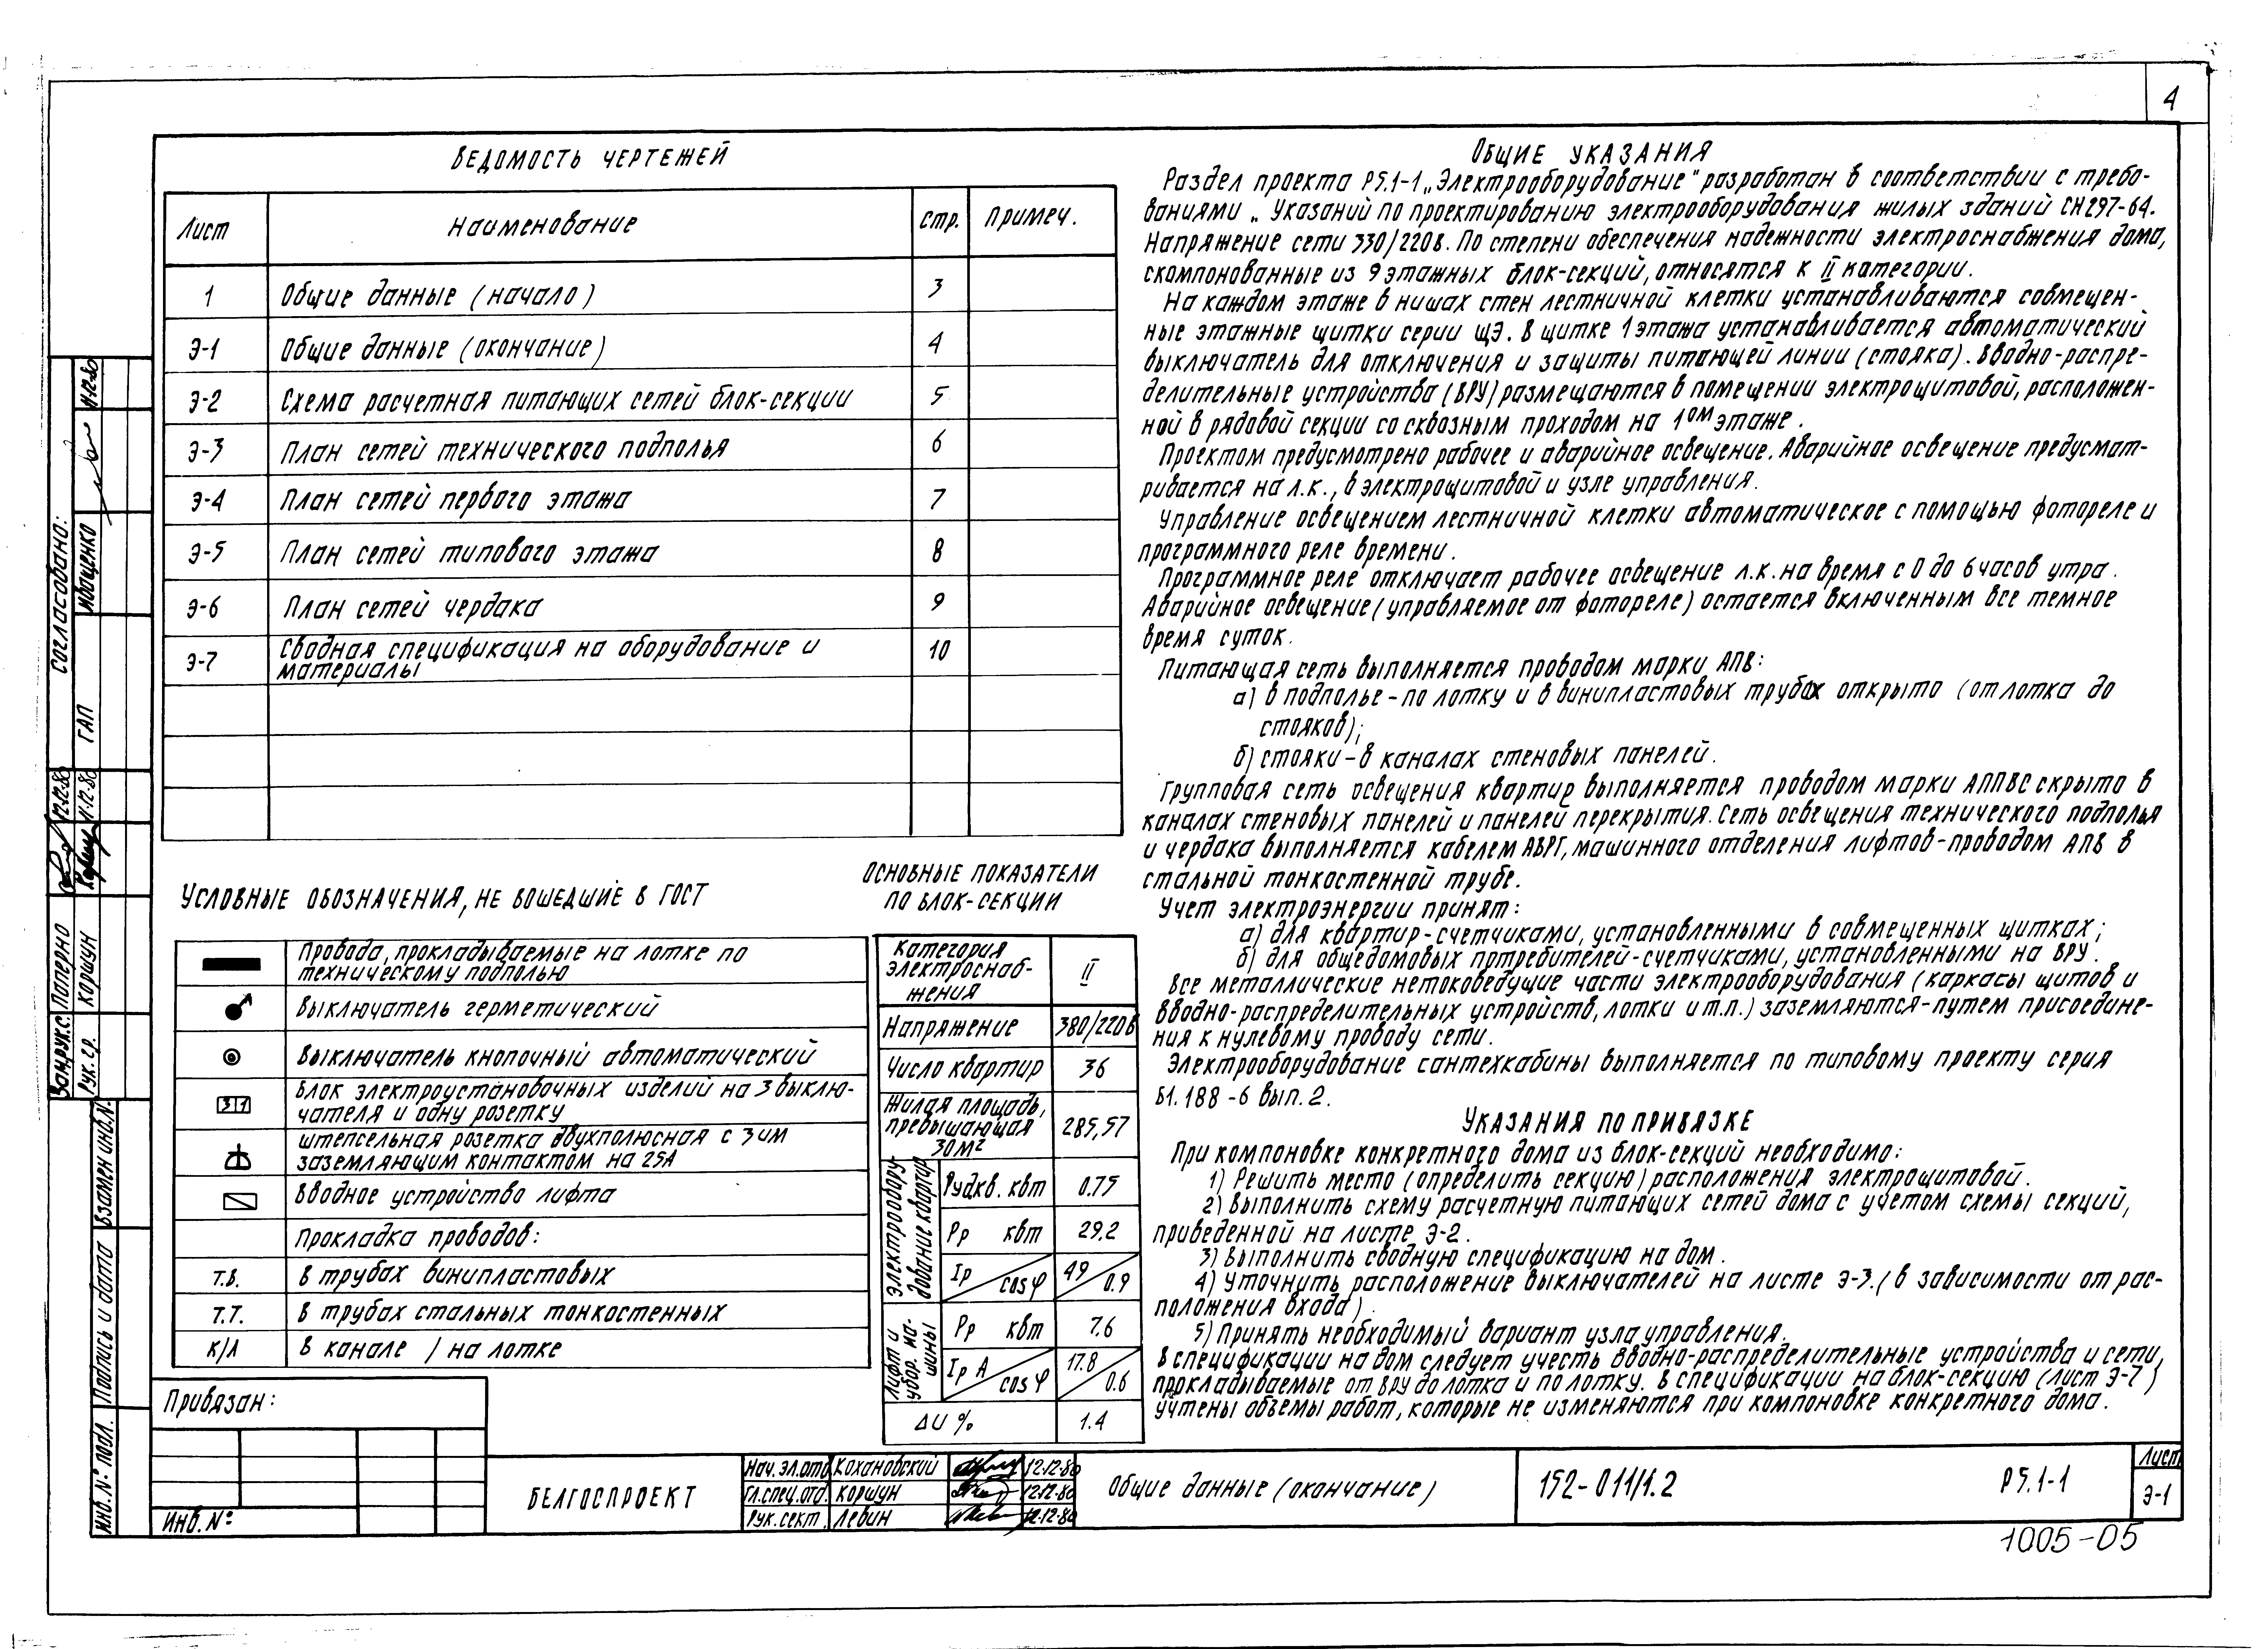 4
Ведомость чертежей
Лист Наименование Стр. Примеч.
1 Общие данные (начало) 3
Э-1 Общие данные (окончание) 4
Э-2 Схема расчетная питающих сетей блок-секции 5
Э-3 План сетей технического подполья 6
Э-4 План сетей первого этажа 7
Э-5 План сетей типового этажа 8
Э-6 План сетей чердака 9
Э-7 Сводная спецификация на оборудование и
материалы 10
Условные обозначения, не вошедшие в ГОСТ
Провода, прокладываемые на лотке по
техническому подполью
Выключатель герметический
Выключатель кнопочный автоматический
3 1 Блок электроустановочных изделий на 3 выклю-
чателя и одну розетку
Штепсельная розетка двухполюсная с 3им
заземляющим контактом на 25А
Вводное устройство лифта
Прокладка проводов:
Т.В. в трубах винипластовых
Т.Т. в трубах стальных тонкостенных
К/Л в канале / на лотке
Основные показатели
по блок-секции
Категория
электроснаб-
жения II
Напряжение 380/220в
Число квартир 36
Жилая площадь,
превышающая
30м² 285,57
Электрообору-
дование квартир
Руд.кв. квт 0.75
Рр квт 29.2
Iр / cos φ 49 / 0.9
Лифт и
убор. ма-
шины
Рр квт 7.6
Iр А / cos φ 17.8 / 0.6
ΔU % 1.4
Общие указания
Раздел проекта Р5.1-1 „Электрооборудование" разработан в соответствии с требо-
ваниями „Указаний по проектированию электрооборудования жилых зданий СН297-64.
Напряжение сети 330/220в. По степени обеспечения надежности электроснабжения дома,
скомпонованные из 9 этажных блок-секций, относятся к II категории.
На каждом этаже в нишах стен лестничной клетки устанавливаются совмещен-
ные этажные щитки серии ЩЭ. В щитке 1 этажа устанавливается автоматический
выключатель для отключения и защиты питающей линии (стояка). Вводно-распре-
делительные устройства (ВРУ) размещаются в помещении электрощитовой, расположен-
ной в рядовой секции со сквозным проходом на 1ом этаже.
Проектом предусмотрено рабочее и аварийное освещение. Аварийное освещение предусмат-
ривается на л.к., в электрощитовой и узле управления.
Управление освещением лестничной клетки автоматическое с помощью фотореле и
программного реле времени.
Программное реле отключает рабочее освещение л.к. на время с 0 до 6 часов утра.
Аварийное освещение (управляемое от фотореле) остается включенным все темное
время суток.
Питающая сеть выполняется проводом марки АПВ:
а) в подполье - по лотку и в винипластовых трубах открыто (от лотка до
стояков);
б) стояки - в каналах стеновых панелей.
Групповая сеть освещения квартир выполняется проводом марки АППВС скрыто в
каналах стеновых панелей и панелей перекрытия. Сеть освещения технического подполья
и чердака выполняется кабелем АВРГ, машинного отделения лифтов-проводом АПВ в
стальной тонкостенной трубе.
Учет электроэнергии принят:
а) для квартир-счетчиками, установленными в совмещенных щитках;
б) для общедомовых потребителей-счетчиками, установленными на ВРУ.
Все металлические нетоковедущие части электрооборудования (каркасы щитов и
вводно-распределительных устройств, лотки и т.п.) заземляются-путем присоедине-
ния к нулевому проводу сети.
Электрооборудование сантехкабины выполняется по типовому проекту серия
Б1.188-6 вып. 2.
Указания по привязке
При компоновке конкретного дома из блок-секций необходимо:
1) Решить место (определить секцию) расположения электрощитовой.
2) Выполнить схему расчетную питающих сетей дома с учетом схемы секций,
приведенной на листе Э-2.
3) Выполнить сводную спецификацию на дом.
4) Уточнить расположение выключателей на листе Э-3. (в зависимости от рас-
положения входа).
5) Принять необходимый вариант узла управления.
В спецификации на дом следует учесть вводно-распределительные устройства и сети,
прокладываемые от ВРУ до лотка и по лотку. В спецификации на блок-секцию (лист Э-7)
учтены объемы работ, которые не изменяются при компоновке конкретного дома.
Согласовано:
ГАП Иващенко 11.12.80
Зам.рук.с. Паперно 12.12.80
Рук. гр. Коршун 11.12.80
Взамен инв.№
Подпись и дата
Инв.№ подл.
Привязан:
Инв. №
БЕЛГОСПРОЕКТ
Нач. эл.отд. Кохановский 12.12.80
Гл.спец.отд. Коршун 12.12.80
Рук.сект. Левин 12.12.80
Общие данные (окончание)
152-011/1.2
Р5.1-1
Лист
Э-1
1005-05